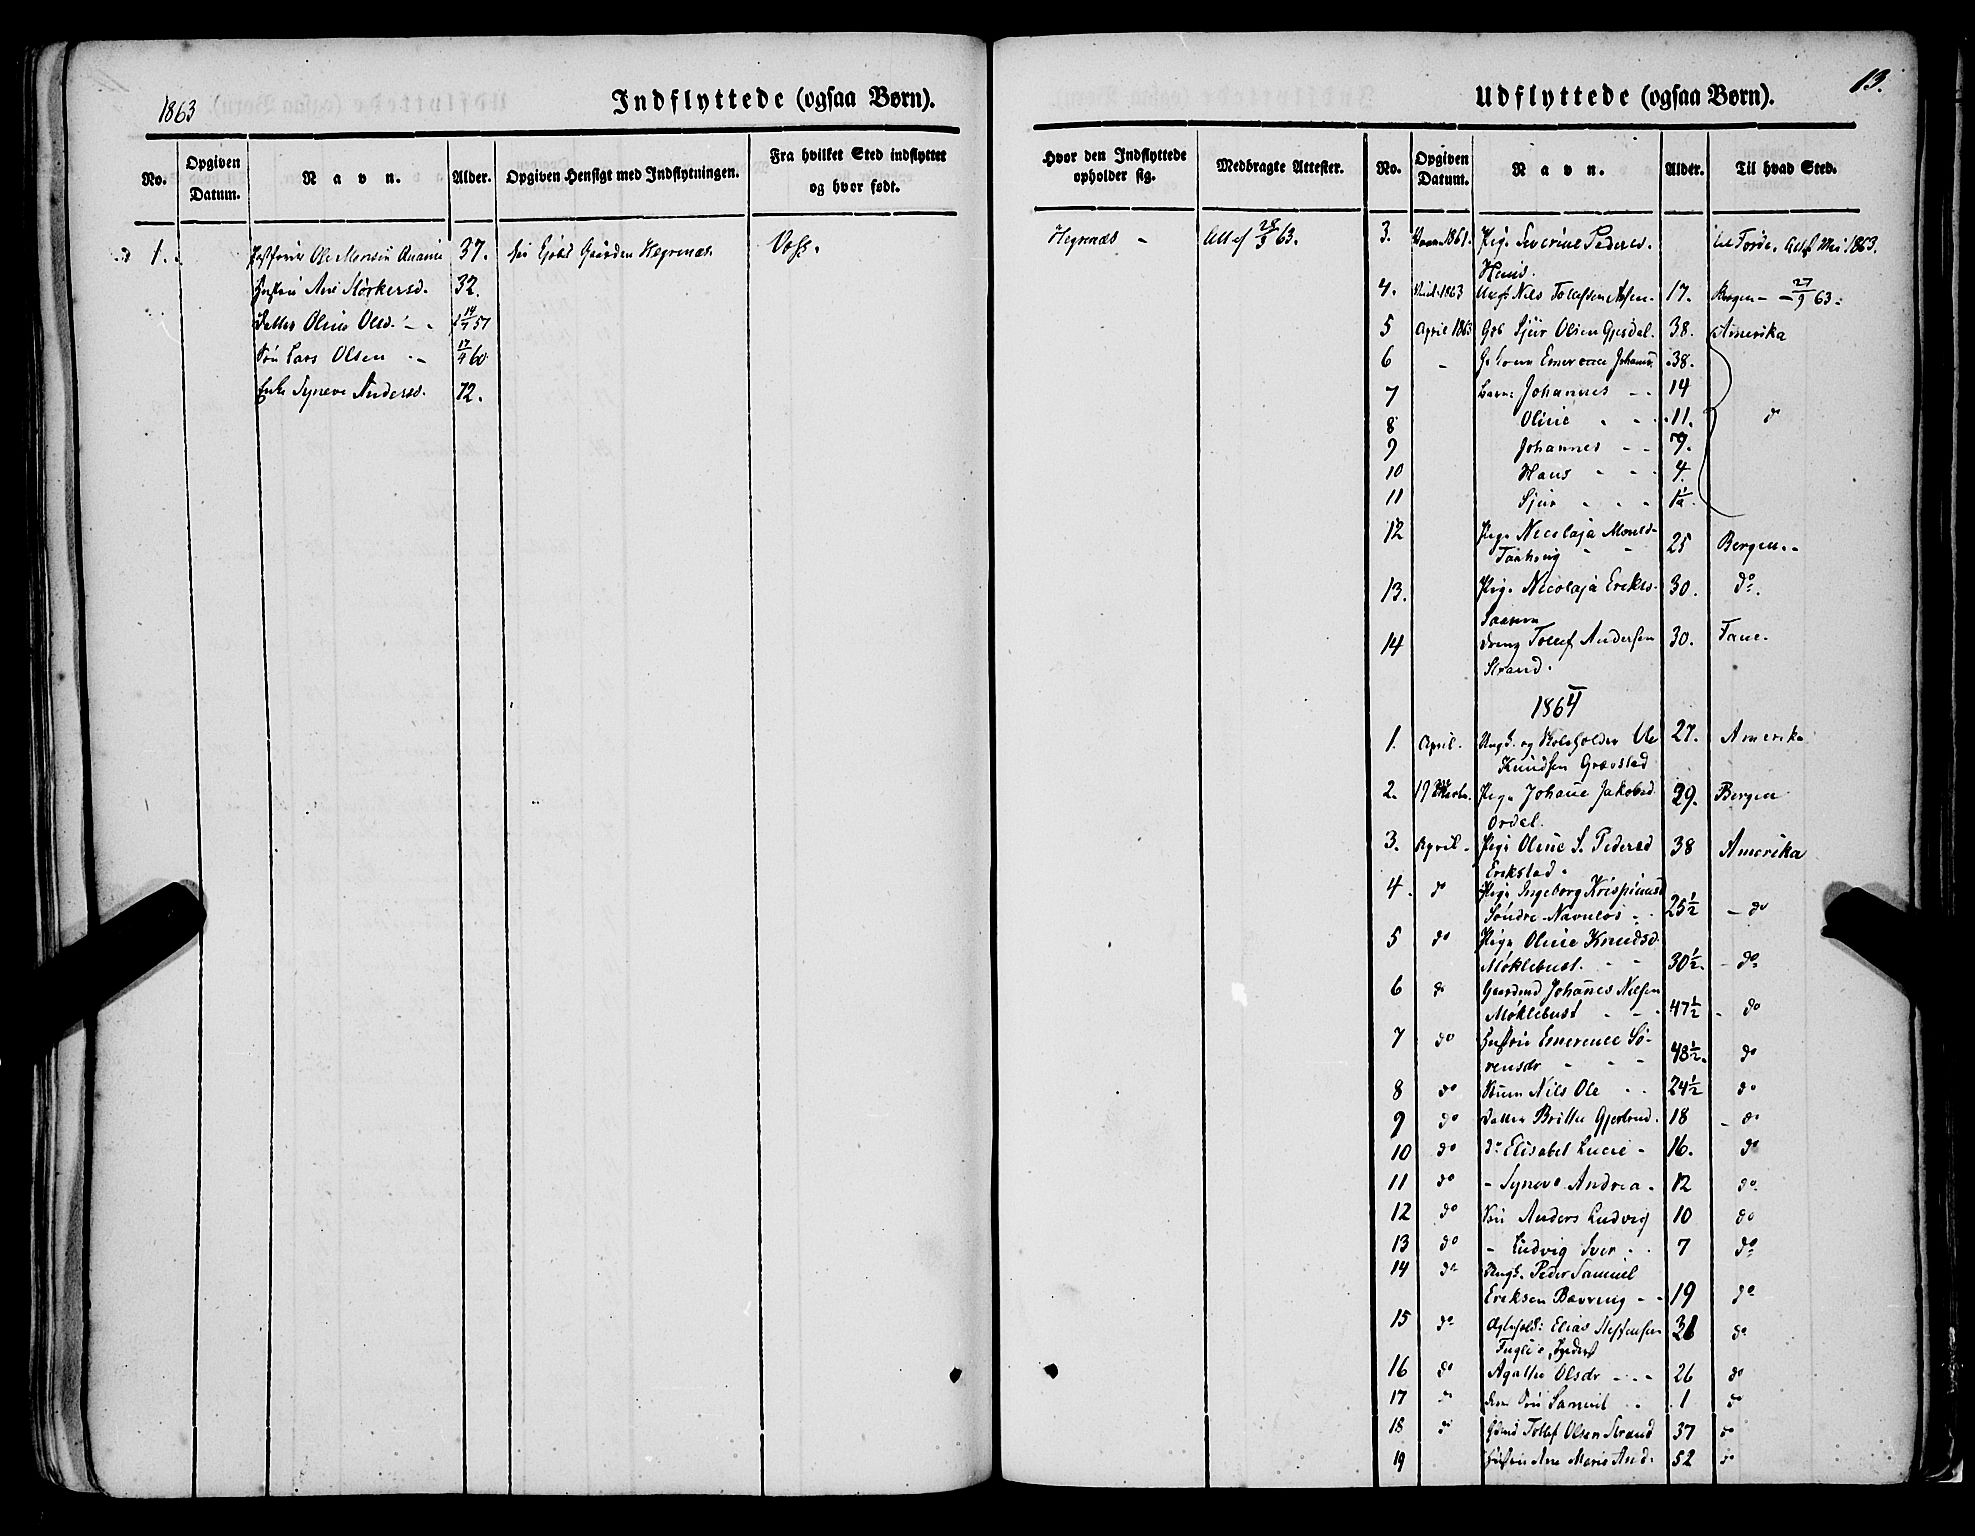 1863
Indflyttede (ogsaa Børn).
No.
Opgiven Datum.
Navn.
Alder.
Opgiven Hensigt med Indflytningen.
Fra hvilket Sted indflyttet og hvor født.
1. Ole Monsen 37. Gaarden Hegrenæs Voss.
Ane Størkersd. 32.
Datter Oline Olsd. 57
Søn Lars Olsen 60
Enke Syneve Andersd. 72.
13.
Udflyttede (ogsaa Børn).
Hvor den Indflyttede opholder sig.
Medbragte Attester.
No.
Opgiven Datum.
Navn.
Alder.
Til hvad Sted.
Hegrenæs - Att af 28/3 63.
3. 1861. Pige Severine Pedersd. til Førde. Att af Mai 1863.
4. 1863 Nils Tollefsen 17. Bergen - 27/9 63.
5 April 1863 Gbr Sjur Olsen Gjesdal. 38. Amerika
6 - Emerence Johans 38.
7 Børn: Johannes - - 14
8 Oline - - 11. do
9 Johannes - - 7.
10 Hans - - 4.
11 Sjur - - 1/2
12 Pige Nicolaja Monsd. 25 Bergen. -
13. Pige Nicolaja Eriksd. 30. do.
14 Dreng Tollef Andersen 30. Fane.
Strand.
1864
1. April. Ungk. og Skoleholder Ole 27. Amerika
Knudsen Grovstad
2. 19 Marts. Pige Johane Jakobsd. 29. Bergen
Ordal.
3. April - Pige Oline S. Pedersd 38 Amerika
Erikstad.
4. do Pige Ingeborg Krispinusd
Søndre Navnløs - 25 1/2 - do
5 do Pige Oline Knudsd.
Møklebust. - - 30 1/2. - do
6 do Gaardmd Johanes Nilsen
Møklebust - - 47 1/2 - do
7 do Hustru Emerence Sø-
rensdr - - 48 1/2. do
8 do Børn Nils Ole - - 24 1/2 do
9 do Datter Brithe Gjertrud. 18 - do
10 do do Elisabet Lucie - 16. do
11 do - Syneve Andrea - 12 do
12 do Søn Anders Ludvig 10 do
13 do - Ludvig Iver - - 7 do
14 do Ungk. Peder Samuel
Eriksen Bævring - - 19 do
15 do Elias Steffensen 31 do
16 do Agathe Olsdr - - - 26 do
17 do Søn Samuel - - 1 do
18 do Gdmd Tollef Olsen Strand 37 do
19 Hustru Ane Marie And. 52 do